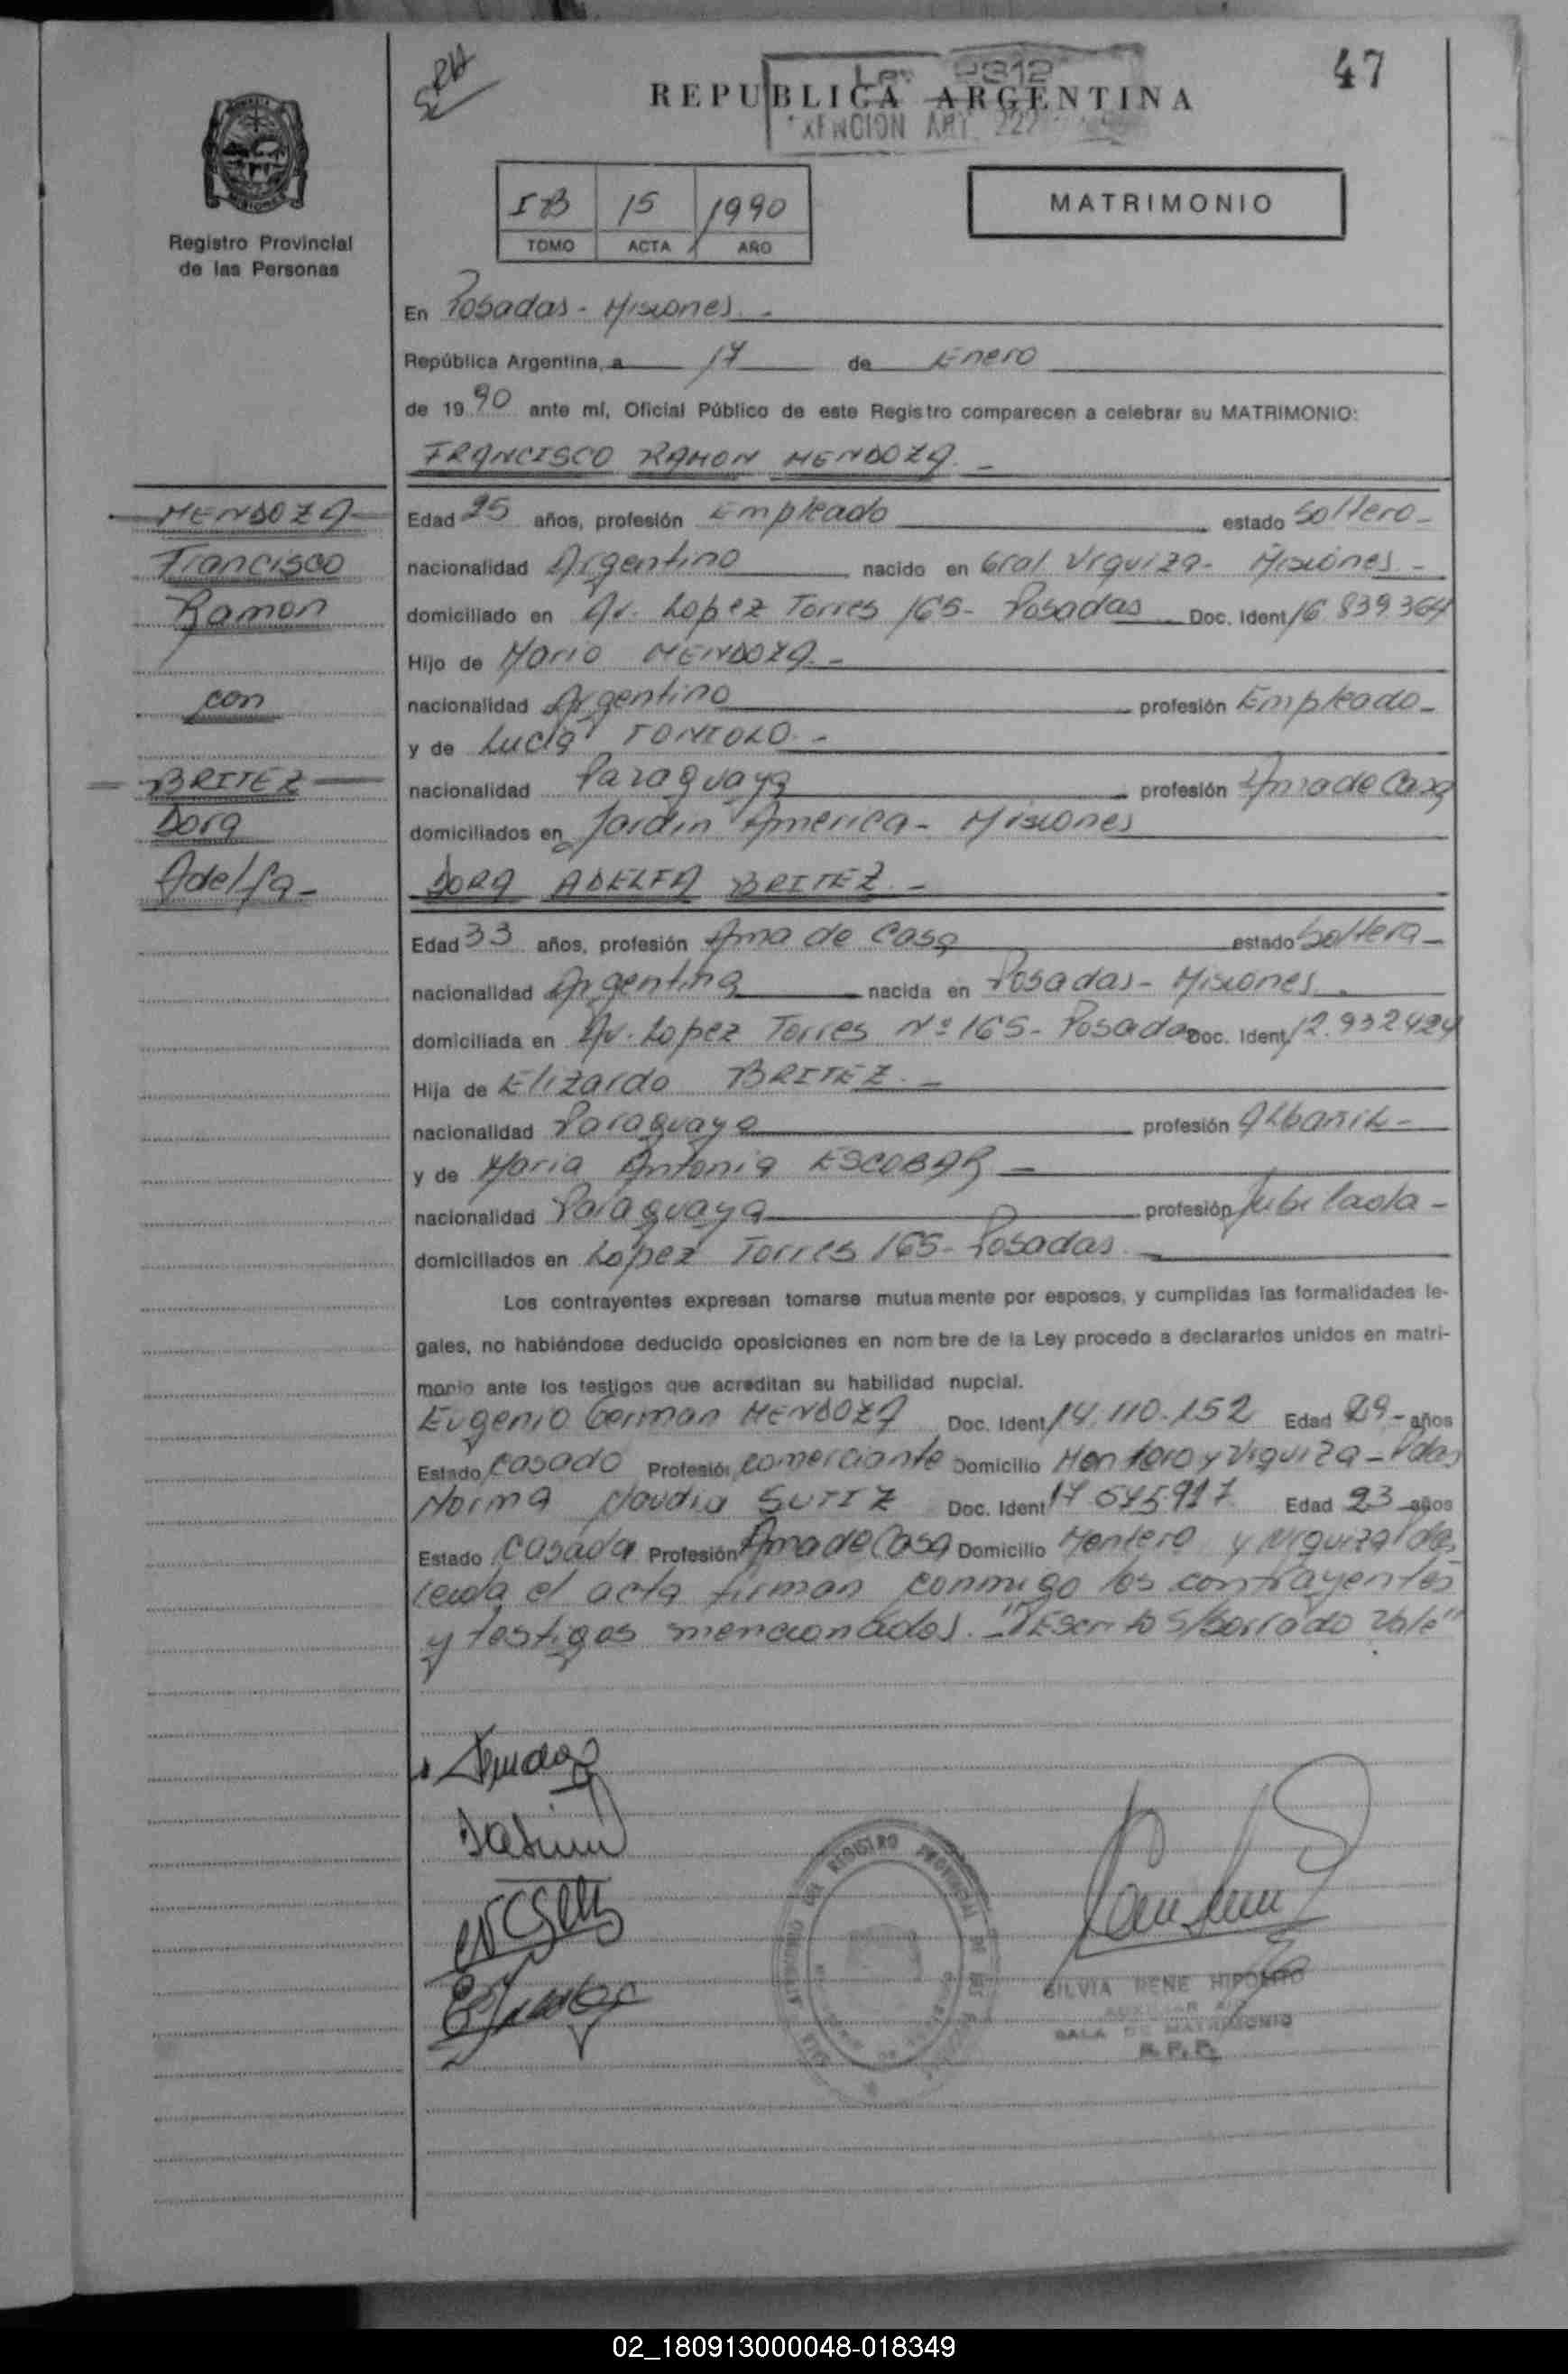 47
Ley 9312
REPUBLICA ARGENTINA
ART. 222
IB 15 1990
TOMO ACTA AÑO
MATRIMONIO
Registro Provincial
de las Personas
En Posadas - Misiones. -
República Argentina, a 17 de Enero
de 1990 ante mí, Oficial Público de este Registro comparecen a celebrar su MATRIMONIO:
FRANCISCO RAMON MENDOZA. -
MENDOZA
Francisco
Ramon
con
BRITEZ
Dora
Adelfa -
Edad 25 años, profesión Empleado estado Soltero -
nacionalidad Argentino nacido en Gral Urquiza - Misiones -
domiciliado en Av. Lopez Torres 165 - Posadas Doc. Ident 16.839.364
Hijo de Mario MENDOZA. -
nacionalidad Argentino profesión Empleado -
y de Lucia TONIOLO. -
nacionalidad Paraguaya profesión Ama de Casa
domiciliados en Jardin America - Misiones
DORA ADELFA BRITEZ. -
Edad 33 años, profesión Ama de Casa estado Soltera -
nacionalidad Argentina nacida en Posadas - Misiones.
domiciliada en Av. Lopez Torres Nº 165 - Posadas Doc. Ident 12.932424
Hija de Elizardo BRITEZ. -
nacionalidad Paraguaya profesión Albañil -
y de Maria Antonia ESCOBAR -
nacionalidad Paraguaya profesión Jubilada -
domiciliados en Lopez Torres 165 - Posadas.
Los contrayentes expresan tomarse mutuamente por esposos, y cumplidas las formalidades le-
gales, no habiéndose deducido oposiciones en nombre de la Ley procedo a declararlos unidos en matri-
monio ante los testigos que acreditan su habilidad nupcial.
Eugenio German MENDOZA Doc. Ident 14.110.152 Edad 29 - años
Estado Casado Profesión comerciante Domicilio Montero y Urquiza - Pdas
Norma Claudia Doc. Ident 17.575.917 Edad 23 años
Estado Casada Profesión Ama de Casa Domicilio Montero y Urquiza Pdas
leida el acta firman conmigo los contrayentes
y testigos mencionados. - "Escrito s/borrado vale"
REGISTRO PROVINCIAL DE LAS
SILVIA RENE HIPOLITO
SALA DE MATRIMONIO
R. P. P.
02_180913000048-018349